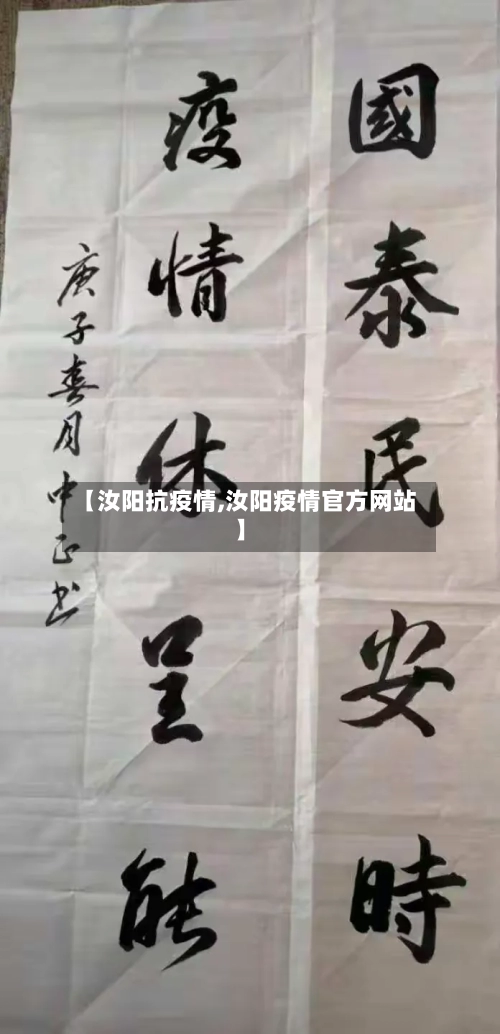 國泰民安時
疫情休呈能
庚子春月中正书
【汝阳抗疫情,汝阳疫情官方网站
】